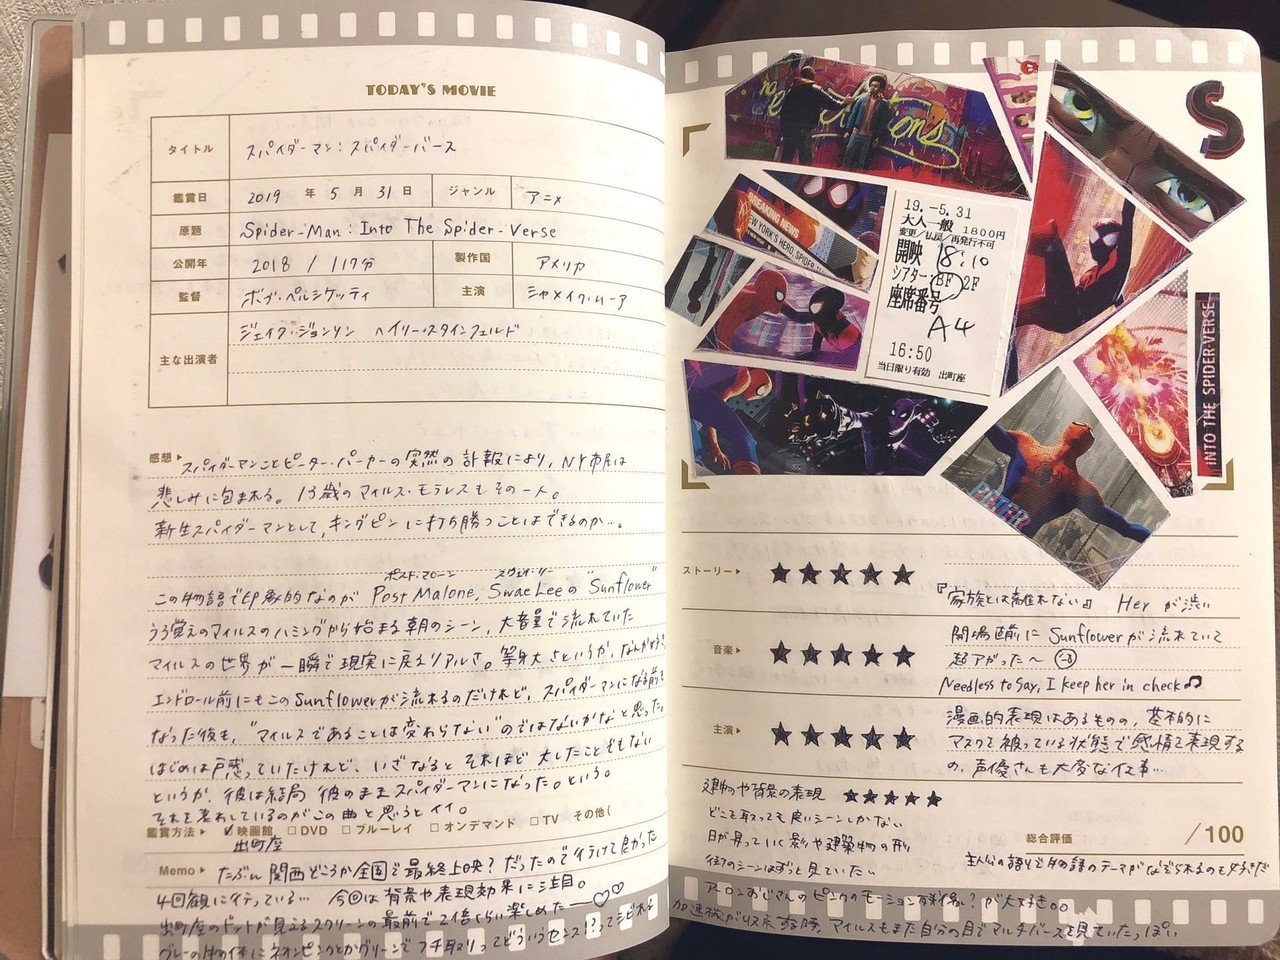 TODAY'S MOVIE
タイトル
スパイダーマン：スパイダーバース
鑑賞日
2019 年 5 月 31 日
ジャンル
アニメ
原題
Spider-Man : Into The Spider-Verse
公開年
2018 / 117分
製作国
アメリカ
監督
ボブ・ペルシケッティ
主演
シャメイク・ムーア
主な出演者
ジェイク・ジョンソン ヘイリー・スタインフェルド
感想▶
スパイダーマンことピーター・パーカーの突然の訃報により、NY市民は
悲しみに包まれる。13歳のマイルス・モラレスもその一人。
新生スパイダーマンとして、キングピンに打ち勝つことはできるのか…。
ポスト・マローン スウェイ・リー
この物語で印象的なのが Post Malone, Swae Leeの "Sunflower"
うろ覚えのマイルスのハミングから始まる朝のシーン、大音量で流れていた
マイルスの世界が一瞬で現実に戻るリアルさ。等身大さというか、なんかより
エンドロール前にもこのSunflowerが流れるのだけれど、スパイダーマンになる前も
なった後も、"マイルスであることは変わらない"のではないかなと思った。
はじめは戸惑っていたけれど、いざなると それほど 大したことでもない
というか、彼は結局 彼のままスパイダーマンになった。という。
それを表わしているのがこの曲と思うとイイ。
鑑賞方法▶ ✓映画館 □DVD □ブルーレイ □オンデマンド □TV その他(
出町座
Memo▶ たぶん 関西どころか全国で最終上映？だったので行けて良かった
4回観に行っている… 今回は背景や表現効果に注目。
出町座のドットが見えるスクリーンの最前で2倍くらい楽しめた——♡♡
グレーの物体にネオンピンクとかグリーンでフチ取りってどういうセンス!?ってシビれる
19.-5.31
大人一般 1800円
変更/払戻/再発行不可
開映 18:10
シアター BF 2F
座席番号
A4
16:50
当日限り有効 出町座
BREAKING NEWS
NEW YORK'S HERO, SPIDER
S
INTO THE SPIDER-VERSE
PETER
ストーリー▶ ★★★★★
『家族とは離れない』 Her が渋い
音楽▶ ★★★★★
開場直前に Sunflowerが流れていて
超アガった〜
Needless to say, I keep her in check♫
主演▶ ★★★★★
漫画的表現はあるものの、基本的に
マスクを被っている状態で感情を表現する
の、声優さんも大変な仕事…
建物や背景の表現 ★★★★★
どこを取っても良いシーンしかない
日が昇っていく影や建築物の形
街のシーンはずっと見ていたい
総合評価 /100
主人公の語りで物語のテーマがなぞられるのも好きだ
アーロンおじさんのピンクのモーション が大好き。。
マイルスもまた自分の目でマルチバースを見ていたっぽい